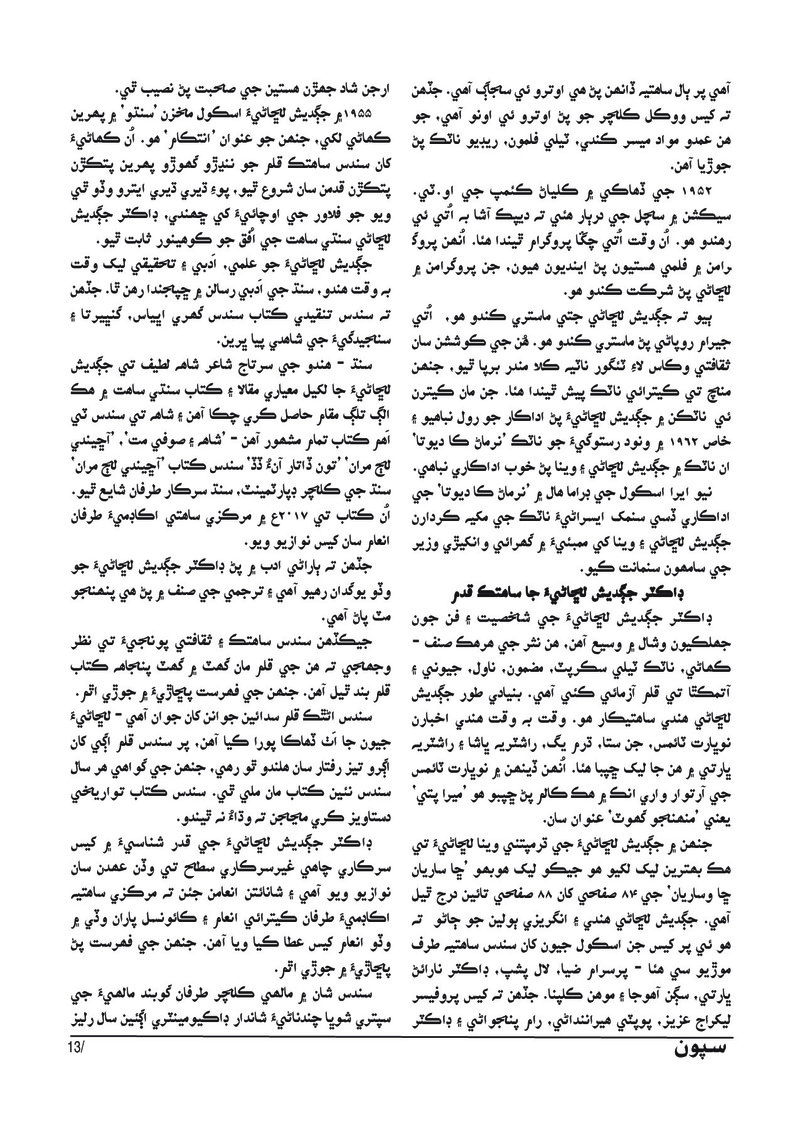 آهي پر ٻال ساهتيہ ڏانهن پڻ هي اوترو ئي سجاڳ آهي. جڏهن
تہ کيس ووڪل ڪلاچر جو پڻ اوترو ئي اونو آهي، جو
هن عمدو مواد ميسر ڪندي، ٽيلي فلمون، ريڊيو ناٽڪ پڻ
جوڙيا آهن.
۱۹۵۲ جي ڏهاڪي ۾ ڪلياڻ ڪئمپ جي او.ٽي.
سيڪشن ۾ ساچل جي درٻار هئي تہ ديپڪ آشا بہ اُتي ئي
رهندو هو. اُن وقت اُتي چڱا پروگرام ٿيندا هئا. اُنهن پروگ
رامن ۾ فلمي هستيون پڻ اينديون هيون، جن پروگرامن ۾
لڇاڻي پڻ شرڪت ڪندو هو.
ٻيو تہ جڳديش لڇاڻي جتي ماستري ڪندو هو، اُتي
جيرام روپاڻي پڻ ماستري ڪندو هو. هُن جي ڪوششن سان
ثقافتي وڪاس لاءِ ٽئگور ناٽيہ ڪلا مندر برپا ٿيو، جنهن
منچ تي ڪيترائي ناٽڪ پيش ٿيندا هئا. جن مان ڪيترن
ئي ناٽڪن ۾ جڳديش لڇاڻيءَ پڻ اداڪار جو رول نباهيو ۽
خاص ۱۹۶۲ ۾ ونود رستوگيءَ جو ناٽڪ 'نرماڻ ڪا ديوتا'
ان ناٽڪ ۾ جڳديش لڇاڻي ۽ وينا پڻ خوب اداڪاري نباهي.
نيو ايرا اسڪول جي ڊراما هال ۾ 'نرماڻ ڪا ديوتا' جي
اداڪاري ڏسي سنمک ايسراڻيءَ ناٽڪ جي مکيہ ڪردارن
جڳديش لڇاڻي ۽ وينا کي ممبئيءَ ۾ گهرائي وانکيڙي وزير
جي سامهون سنمانت ڪيو.
ڊاڪٽر جڳديش لڇاڻيءَ جا ساهتڪ قدم
ڊاڪٽر جڳديش لڇاڻيءَ جي شخصيت ۽ فن جون
جهلڪيون وشال ۾ وسيع آهن. هن نثر جي هرهڪ صنف -
ڪهاڻي، ناٽڪ ٽيلي سڪرپٽ، مضمون، ناول، جيوني ۽
آتمڪٿا تي قلم آزمائي ڪئي آهي. بنيادي طور جڳديش
لڇاڻي هندي ساهتيڪار هو. وقت بہ وقت هندي اخبارن
نوڀارت ٽائمس، جن ستا، ڌرم يگ، راشٽريہ ڀاشا ۽ راشٽريہ
ڀارتي ۾ هن جا ليک ڇپبا هئا. اُنهن ڏينهن ۾ نوڀارت ٽائمس
جي آرتوار واري انڪ ۾ هڪ ڪالم پڻ ڇپبو هو 'ميرا پتي'
يعني 'منهنجو گهوٽ' عنوان سان.
جنهن ۾ جڳديش لڇاڻيءَ جي ڌرمپتني وينا لڇاڻيءَ تي
هڪ بهترين ليک لکيو هو جيڪو ليک هوبهو 'ڇا ساريان
ڇا وساريان' جي ۸۴ صفحي کان ۸۸ صفحي تائين درج ٿيل
آهي. جڳديش لڇاڻي هندي ۽ انگريزي ٻولين جو ڄاڻو تہ
هو ئي پر کيس جن اسڪول جيون کان سندس ساهتيہ طرف
موڙيو سي هئا - پرسرام ضيا، لال پشپ، ڊاڪٽر نارائڻ
ڀارتي، سڳن آهوجا ۽ موهن ڪلپنا. جڏهن تہ کيس پروفيسر
ليکراج عزيز، پوپٽي هيراننداڻي، رام پنجواڻي ۽ ڊاڪٽر
ارجن شاد جهڙن هستين جي صحبت پڻ نصيب ٿي.
۱۹۵۵ ۾ جڳديش لڇاڻيءَ اسڪول مخزن 'سنڌو' ۾ پهرين
ڪهاڻي لکي، جنهن جو عنوان 'انتڪام' هو. اُن ڪهاڻيءَ
کان سندس ساهتڪ قلم جو ننڍڙو گهوڙو پهرين پتڪڙن
پتڪڙن قدمن سان شروع ٿيو، پوءِ ڌيري ڌيري ايترو وڏو ٿي
ويو جو فلاور جي اوچائيءَ کي ڇهندي، ڊاڪٽر جڳديش
لڇاڻي سنڌي ساهت جي اُفق جو ڪوهينور ثابت ٿيو.
جڳديش لڇاڻيءَ جو علمي، اَدبي ۽ تحقيقي ليک وقت
بہ وقت هندو، سنڌ جي اَدبي رسالن ۾ ڇپجندا رهن ٿا. جڏهن
تہ سندس تنقيدي ڪتاب سندس گهري اڀياس، گنڀيرتا ۽
سنجيدگيءَ جي شاهدي پيا ڀرين.
سنڌ - هندو جي سرتاج شاعر شاهہ لطيف تي جڳديش
لڇاڻيءَ جا لکيل معياري مقالا ۽ ڪتاب سنڌي ساهت ۾ هڪ
الڳ تلڳ مقام حاصل ڪري چڪا آهن ۽ شاهہ تي سندس ٽي
اَهم ڪتاب تمام مشهور آهن - 'شاهہ ۽ صوفي مت'، 'آڇيندي
لڄ مران' 'تون ڏاتار آنءُ ڏڏ' سندس ڪتاب 'آڇيندي لڄ مران'
سنڌ جي ڪلچر ڊپارٽمينٽ، سنڌ سرڪار طرفان شايع ٿيو.
اُن ڪتاب تي ۲۰۱۷ع ۾ مرڪزي ساهتي اڪاڊميءَ طرفان
انعام سان کيس نوازيو ويو.
جڏهن تہ ٻاراڻي ادب ۾ پڻ ڊاڪٽر جڳديش لڇاڻيءَ جو
وڏو يوگدان رهيو آهي ۽ ترجمي جي صنف ۾ پڻ هي پنهنجو
مٽ پاڻ آهي.
جيڪڏهن سندس ساهتڪ ۽ ثقافتي پونجيءَ تي نظر
وجهجي تہ هن جي قلم مان گهٽ ۾ گهٽ پنجاهہ ڪتاب
قلم بند ٿيل آهن. جنهن جي فهرست پڇاڙيءَ ۾ جوڙي اٿم.
سندس اٿڪ قلم سدائين جوانن کان جوان آهي - لڇاڻيءَ
جيون جا اَٺ ڏهاڪا پورا ڪيا آهن، پر سندس قلم اڳي کان
اڳرو تيز رفتار سان هلندو ٿو رهي، جنهن جي گواهي هر سال
سندس نئين ڪتاب مان ملي ٿي. سندس ڪتاب تواريخي
دستاويز ڪري مڃجن تہ وڌاءُ نہ ٿيندو.
ڊاڪٽر جڳديش لڇاڻيءَ جي قدر شناسيءَ ۾ کيس
سرڪاري چاهي غيرسرڪاري سطاح تي وڏن عهدن سان
نوازيو ويو آهي ۽ شانائتن انعامن جئن تہ مرڪزي ساهتيہ
اڪاڊميءَ طرفان ڪيترائي انعام ۽ ڪائونسل پاران وڏي ۾
وڏو انعام کيس عطا ڪيا ويا آهن. جنهن جي فهرست پڻ
پڇاڙيءَ ۾ جوڙي اٿم.
سندس شان ۾ مالهي ڪلچر طرفان گوبند مالهيءَ جي
سپتري شوڀا چندناڻيءَ شاندار ڊاڪيومينٽري اڳئين سال رليز
13/
سپون